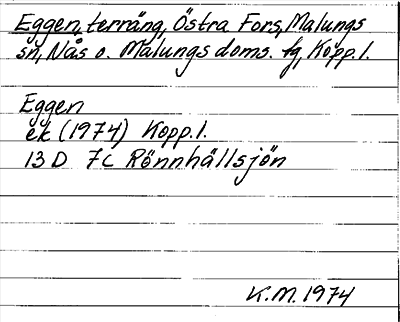 Eggen, terräng, Östra Fors, Malungs
sn, Nås o. Malungs doms. fg, Kopp. l.
Eggen
ek (1974) Kopp. l.
13 D 7c Rönnhällsjön
K.M. 1974